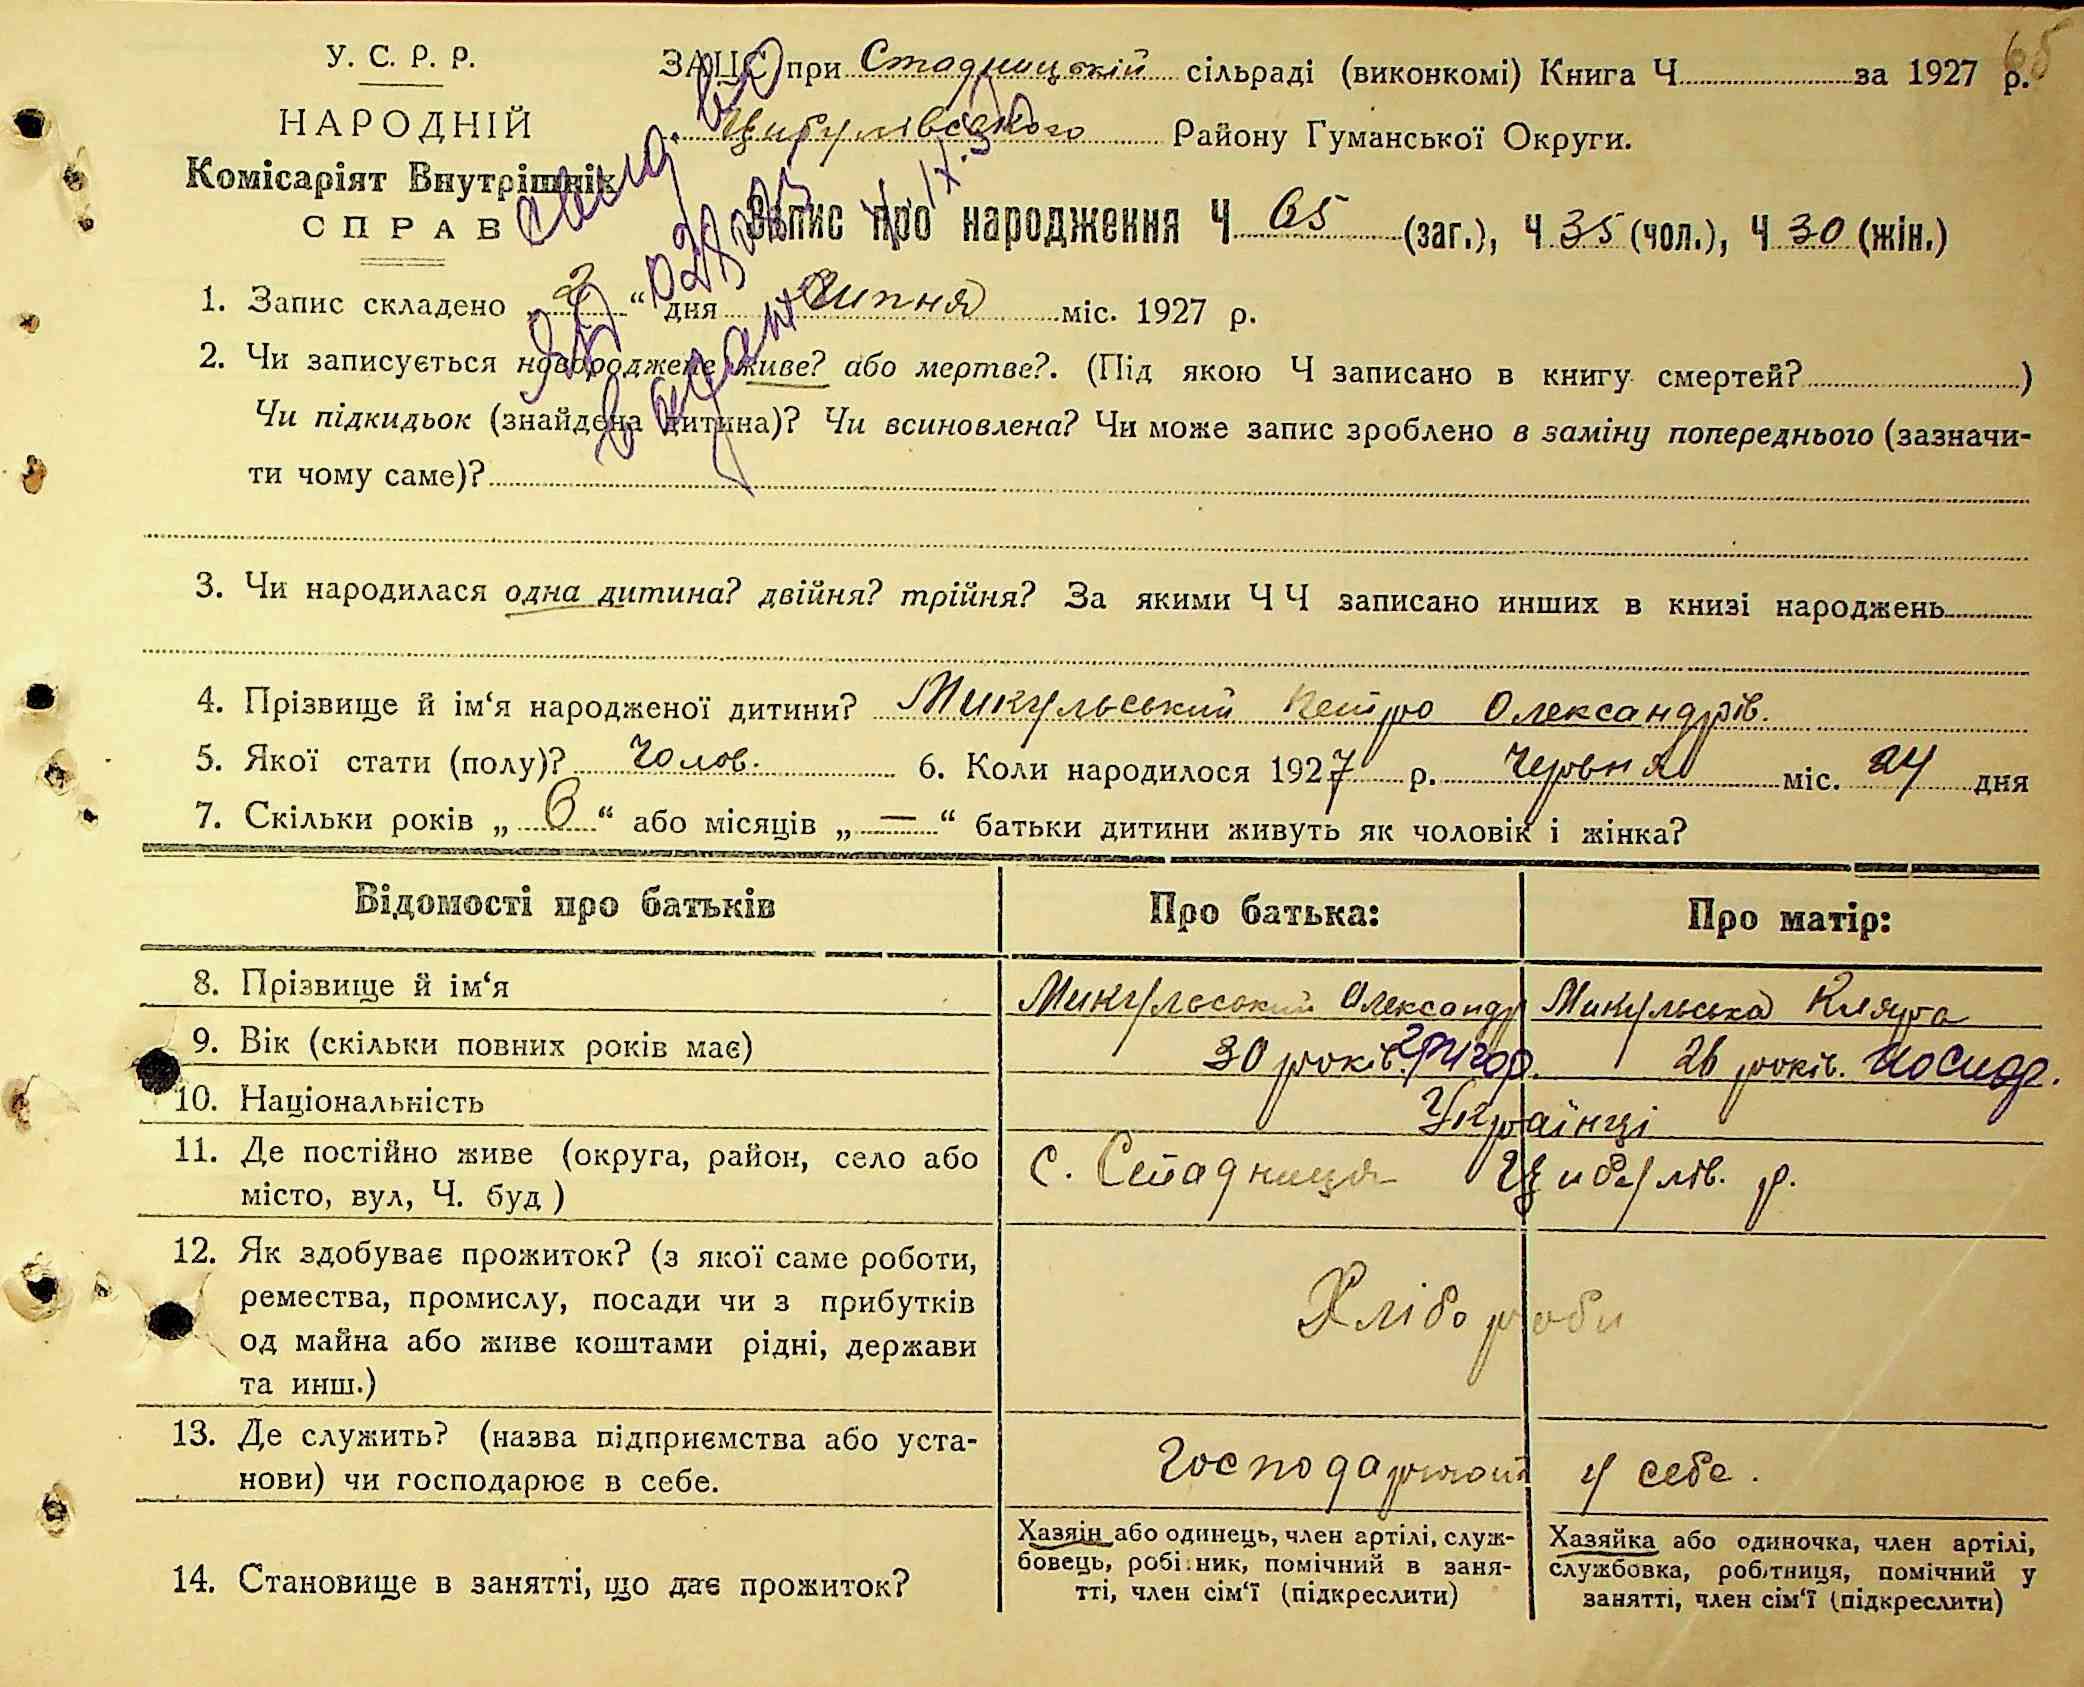 У. С. Р. Р.
НАРОДНІЙ
Комісаріят Внутрішніх
СПРАВ
65
ЗАЦС при Стадницькій сільраді (виконкомі) Книга Ч за 1927 р.
Цибулівського Району Гуманської Округи.
Запис про народження Ч 65 (заг.), Ч 35 (чол.), Ч 30 (жін.)
1. Запис складено „ 2 “ дня Липня міс. 1927 р.
2. Чи записується новороджене живе? або мертве?. (Під якою Ч записано в книгу смертей? )
Чи підкидьок (знайдена дитина)? Чи всиновлена? Чи може запис зроблено в заміну попереднього (зазначи-
ти чому саме)?
3. Чи народилася одна дитина? двійня? трійня? За якими ЧЧ записано инших в книзі народжень
4. Прізвище й ім‘я народженої дитини? Микульський Петро Олександрів.
5. Якої стати (полу)? Чолов. 6. Коли народилося 1927 р. Червня міс. 24 дня
7. Скільки років „ 6 “ або місяців „ — “ батьки дитини живуть як чоловік і жінка?
Відомості про батьків Про батька: Про матір:
8. Прізвище й ім‘я Микульський Олександр Микульська Кляра
9. Вік (скільки повних років має) 30 років. Григор. 26 років. Иосиф.
10. Національність Українці
11. Де постійно живе (округа, район, село або
місто, вул, Ч. буд ) с. Стадниця Цибулів. р.
12. Як здобуває прожиток? (з якої саме роботи,
ремества, промислу, посади чи з прибутків
од майна або живе коштами рідні, держави
та инш.)
Хлібороби
13. Де служить? (назва підприємства або уста-
нови) чи господарює в себе.
у себе.
14. Становище в занятті, що дає прожиток?
Хазяін або одинець, член артілі, служ-
бовець, робітник, помічний в заня-
тті, член сім‘ї (підкреслити)
Хазяйка або одиночка, член артілі,
службовка, робітниця, помічний у
занятті, член сім‘ї (підкреслити)